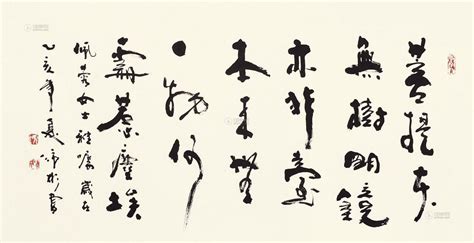 菩提本
無樹明鏡
亦非臺
本来無
一物何
處惹塵埃
佩女士雅嘱歲在
乙亥年夏書